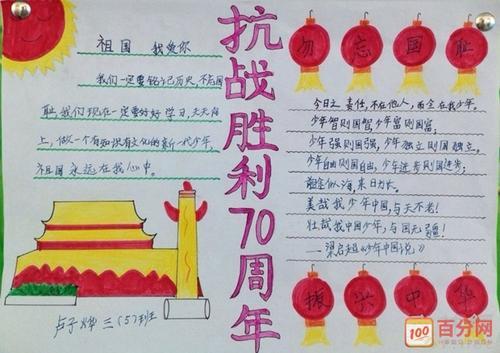 祖国 我爱你
我们一定要铭记历史,不忘国
耻,我们现在一定要好好学习,天天向
上,做一个有知识有文化的新一代少年,
祖国永远在我心中。
三(5)班
抗战胜利70周年
勿忘国耻
今日之责任,不在他人,而全在我少年。
少年智则国智,少年富则国富;
少年强则国强,少年独立则国独立。
少年自由则国自由,少年进步则国进步;
前途似海,来日方长。
美哉我少年中国,与天不老!
壮哉我中国少年,与国无疆!
—梁启超《少年中国说》
振兴中华
100
百分网